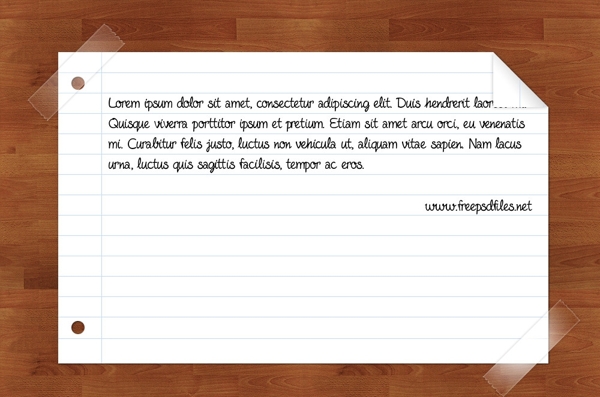 Lorem ipsum dolor sit amet, consectetur adipiscing elit. Duis hendrerit
Quisque viverra porttitor ipsum et pretium. Etiam sit amet arcu orci, eu venenatis
mi. Curabitur felis justo, luctus non vehicula ut, aliquam vitae sapien. Nam lacus
urna, luctus quis sagittis facilisis, tempor ac eros.
www.freepsdfiles.net